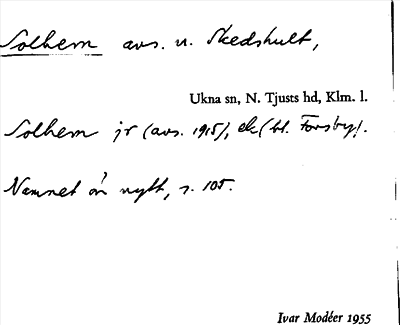 Solhem avs. u. Skedshult,
Ukna sn, N. Tjusts hd, Klm. l.
Solhem jr (avs. 1915), ek (bl. Forsby).
Namnet är nytt, s. 105.
Ivar Modéer 1955